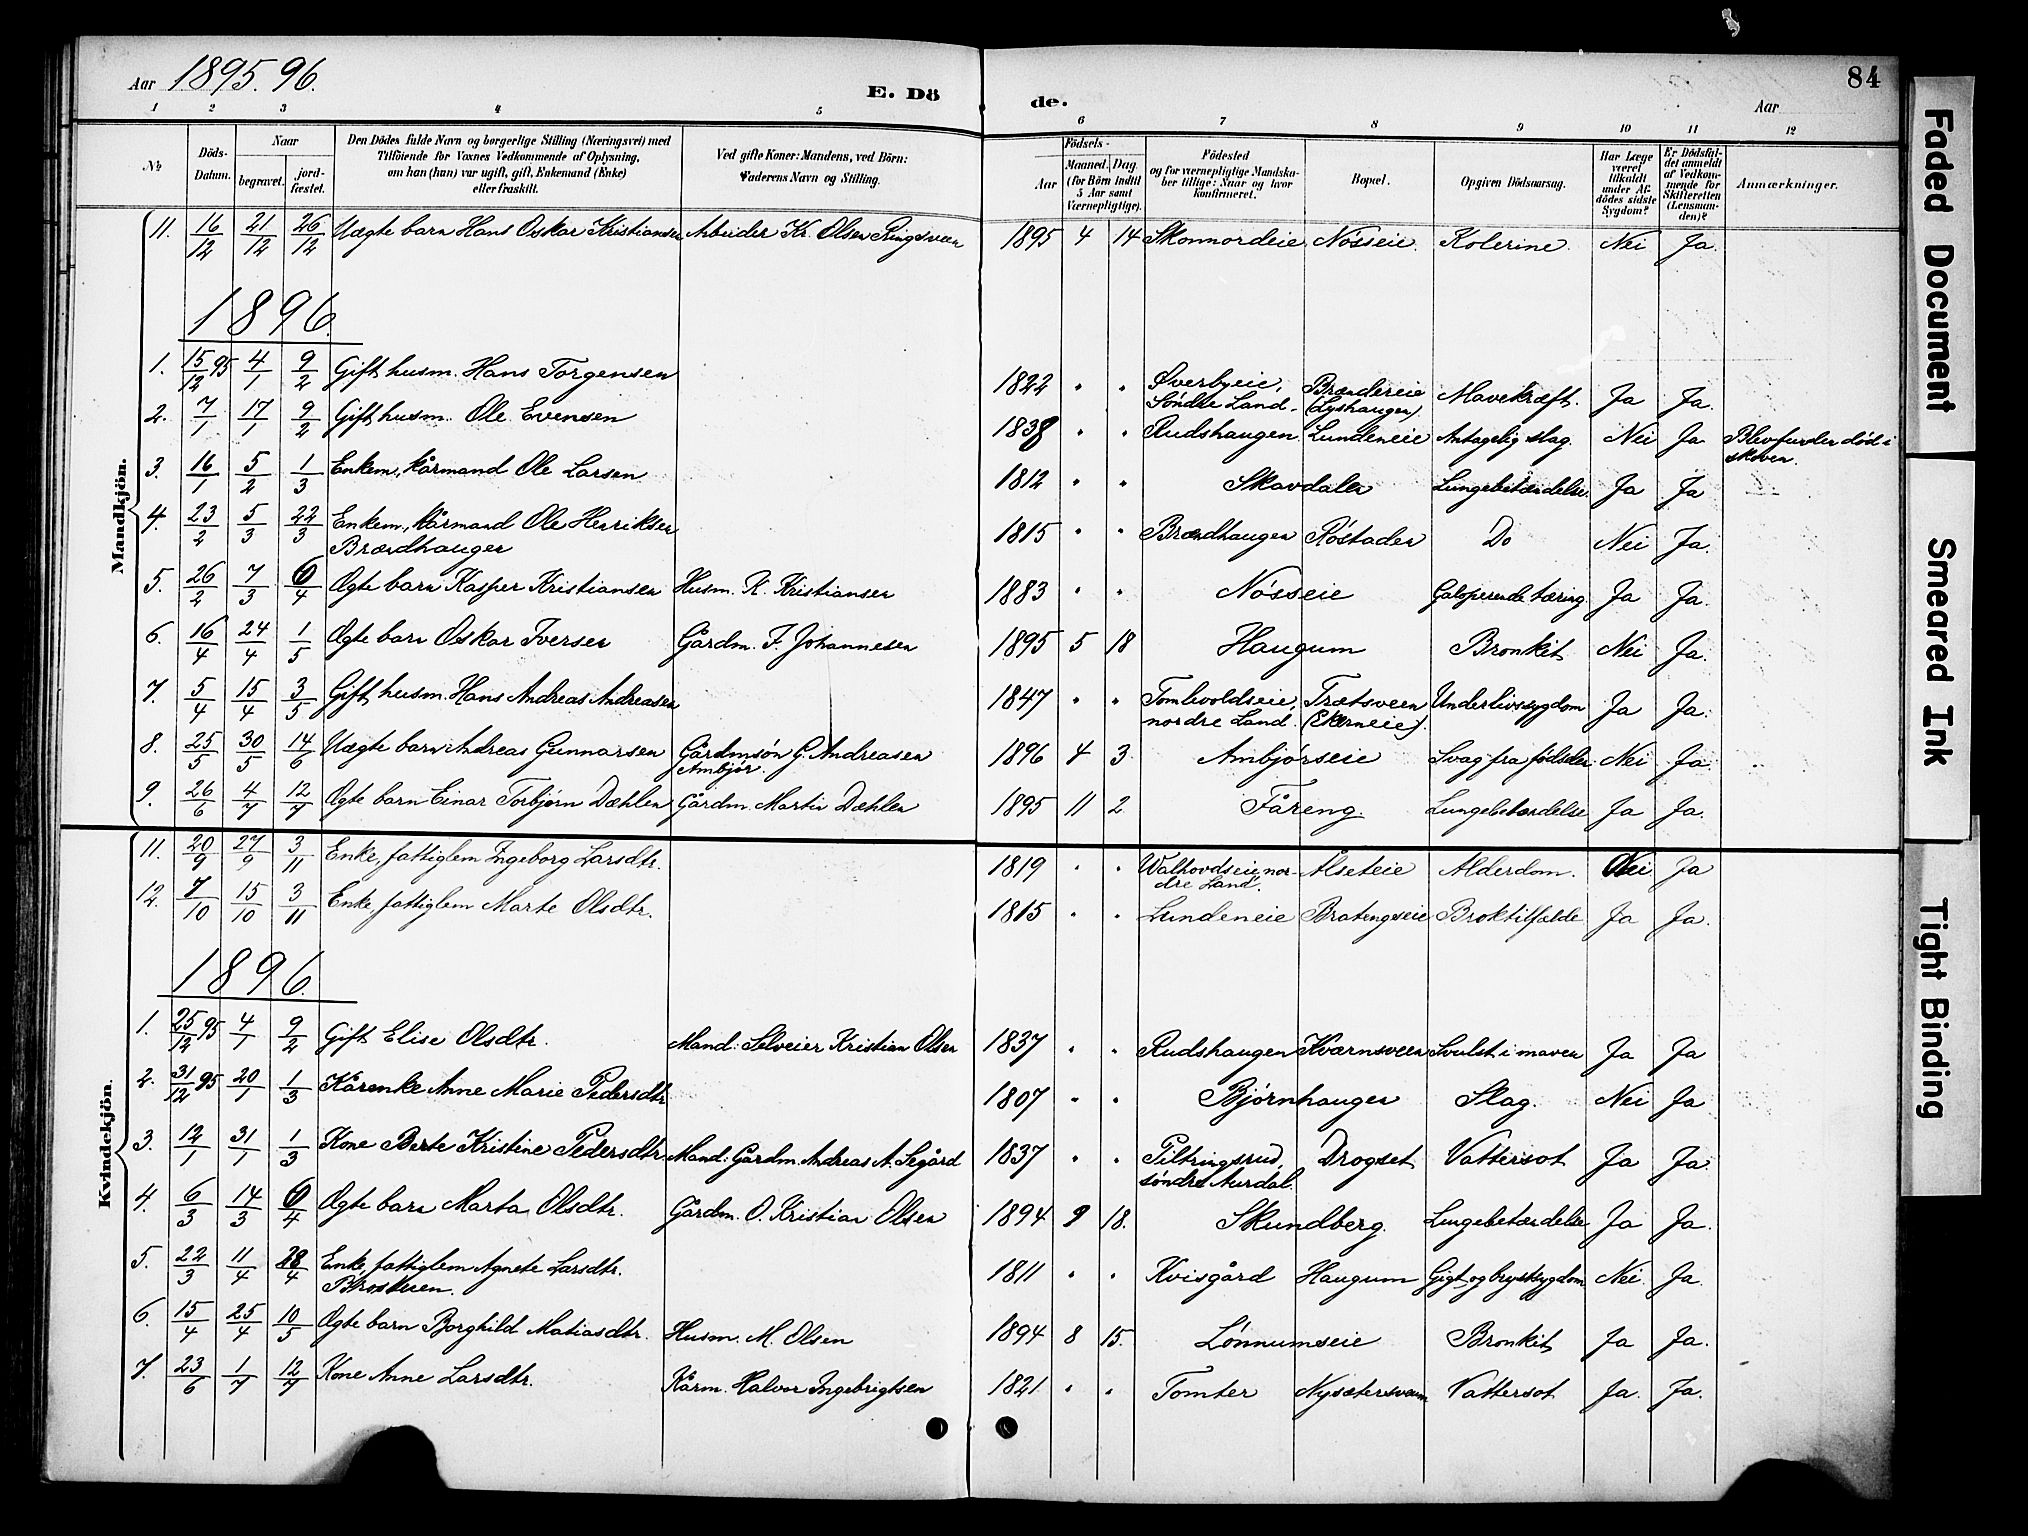 Aar 1895.96. E. Dö de. Aar 84
1 2 3 4 5 6 7 8 9 10 11 12
№ Döds-Datum. Naar begravet. jordfæstet. Den Dödes fulde Navn og borgerlige Stilling (Næringsvei) med Tilföiende for Voxnes Vedkommende af Oplysning, om han (hun) var ugift, gift, Enkemand (Enke) eller fraskilt. Ved gifte Koner: Mandens, ved Börn: Faderens Navn og Stilling. Födsels- Aar Maaned. Dag (for Börn indtil 5 Aar samt Værnepligtige). Födested og for værnepligtige Mandskaber tillige: Naar og hvor konfirmeret. Bopæl. Opgiven Dödsaarsag. Har Læge været tilkaldt under Afdödes sidste Sygdom? Er Dödsfaldet anmeldt af Vedkommende for Skifteretten (Lensmanden)? Anmærkninger.
Mandkjön.
11. 16/12 21/12 26/12 Uægte barn Hans Oskar Kristiansen Arbeider Kr. Olsen Ringsveen 1895 4 14 Skonnordeie Nøsseie. Kolerine. Nei Ja.
1896.
1. 15/12 95 4/1 9/2 Gift husm. Hans Torgensen 1822 " " Øverbyeie, Søndre Land. Brændereie (Lyshaugen). Mavekræft. Ja Ja.
2. 7/1 17/1 9/2 Gift husm. Ole Evensen 1838 " " Rudshaugen Lundeneie Antagelig slag. Nei Ja Blev funden død i skoven.
3. 16/1 5/2 1/3 Enkem., kårmand Ole Larsen 1812 " " Skavdalen Lungebetændelse. Ja Ja
4. 23/2 5/3 22/3 Enkem., kårmand Ole Henriksen Brændhaugen 1815 " " Brændhaugen Røstaden Do Nei Ja.
5. 26/2 7/3 6/4 Ægte barn Kasper Kristiansen Husm. K. Kristiansen 1883 " " Nøsseie Galoperende tæring Ja Ja.
6. 16/4 24/4 1/5 Ægte barn Oskar Iversen Gårdm. I. Johannesen 1895 5 18 Haugum Bronkit Nei Ja.
7. 5/4 15/4 3/5 Gift husm. Hans Andreas Andreasen 1847 " " Tomlevoldseie, nordre Land. Trætsveen (Ekerneie). Underlivssygdom Ja Ja.
8. 25/5 30/5 14/6 Uægte barn Andreas Gunnarsen Gårdmsøn G. Andreasen Ambjør. 1896 4 3 Ambjørseie Svag fra fødselen Nei Ja.
9. 26/6 4/7 12/7 Ægte barn Einar Torbjørn Dæhlen Gårdm. Martin Dæhlen 1895 11 2 Fåreng. Lungebetændelse Ja Ja.
Kvindekjön.
11. 20/9 27/9 3/11 Enke, fattiglem Ingeborg Larsdtr. 1819 " " Walhovdseie nordre Land. Alseteie Alderdom. Nei Ja
12. 7/10 15/10 3/11 Enke, fattiglem Marte Olsdtr. 1815 " " Lundeneie Bratengseie Broktilfælde Ja Ja.
1896.
1. 25/12 95 4/1 9/2 Gift Elise Olsdtr. Mand: Selveier Kristian Olsen 1837 " " Rudshaugen Kværnsveen Svulst i maven Ja Ja
2. 31/12 95 20/1 1/3 Kårenke Anne Marie Pedersdtr 1807 " " Bjørnhaugen Slag. Nei Ja
3. 12/1 31/1 1/3 Kone Berte Kristine Pedersdtr. Mand: Gårdm. Andreas A. Segård 1837 " " Piltingsrud, søndre Aurdal. Drogset Vattersot Ja Ja.
4. 6/3 14/3 6/4 Ægte barn Marta Olsdtr. Gårdm. O. Kristian Olsen 1894 9 18. Skundberg. Lungebetændelse Ja Ja.
5. 22/3 11/4 28/4 Enke, fattiglem Agnete Larsdtr. 1811 " " Kvisgård Haugum Gigt og brystsygdom Nei Ja.
6. 15/4 25/4 10/5 Ægte barn Borghild Matiasdtr. Husm. M. Olsen 1894 8 15. Lønnumseie Bronkit Ja Ja.
7. 23/6 1/7 12/7 Kone Anne Larsdtr. Kårm. Halvor Ingebrigtsen 1821 " " Tomter Nysætersveen Vattersot Ja. Ja.
Faded Document
Smeared Ink
Tight Binding